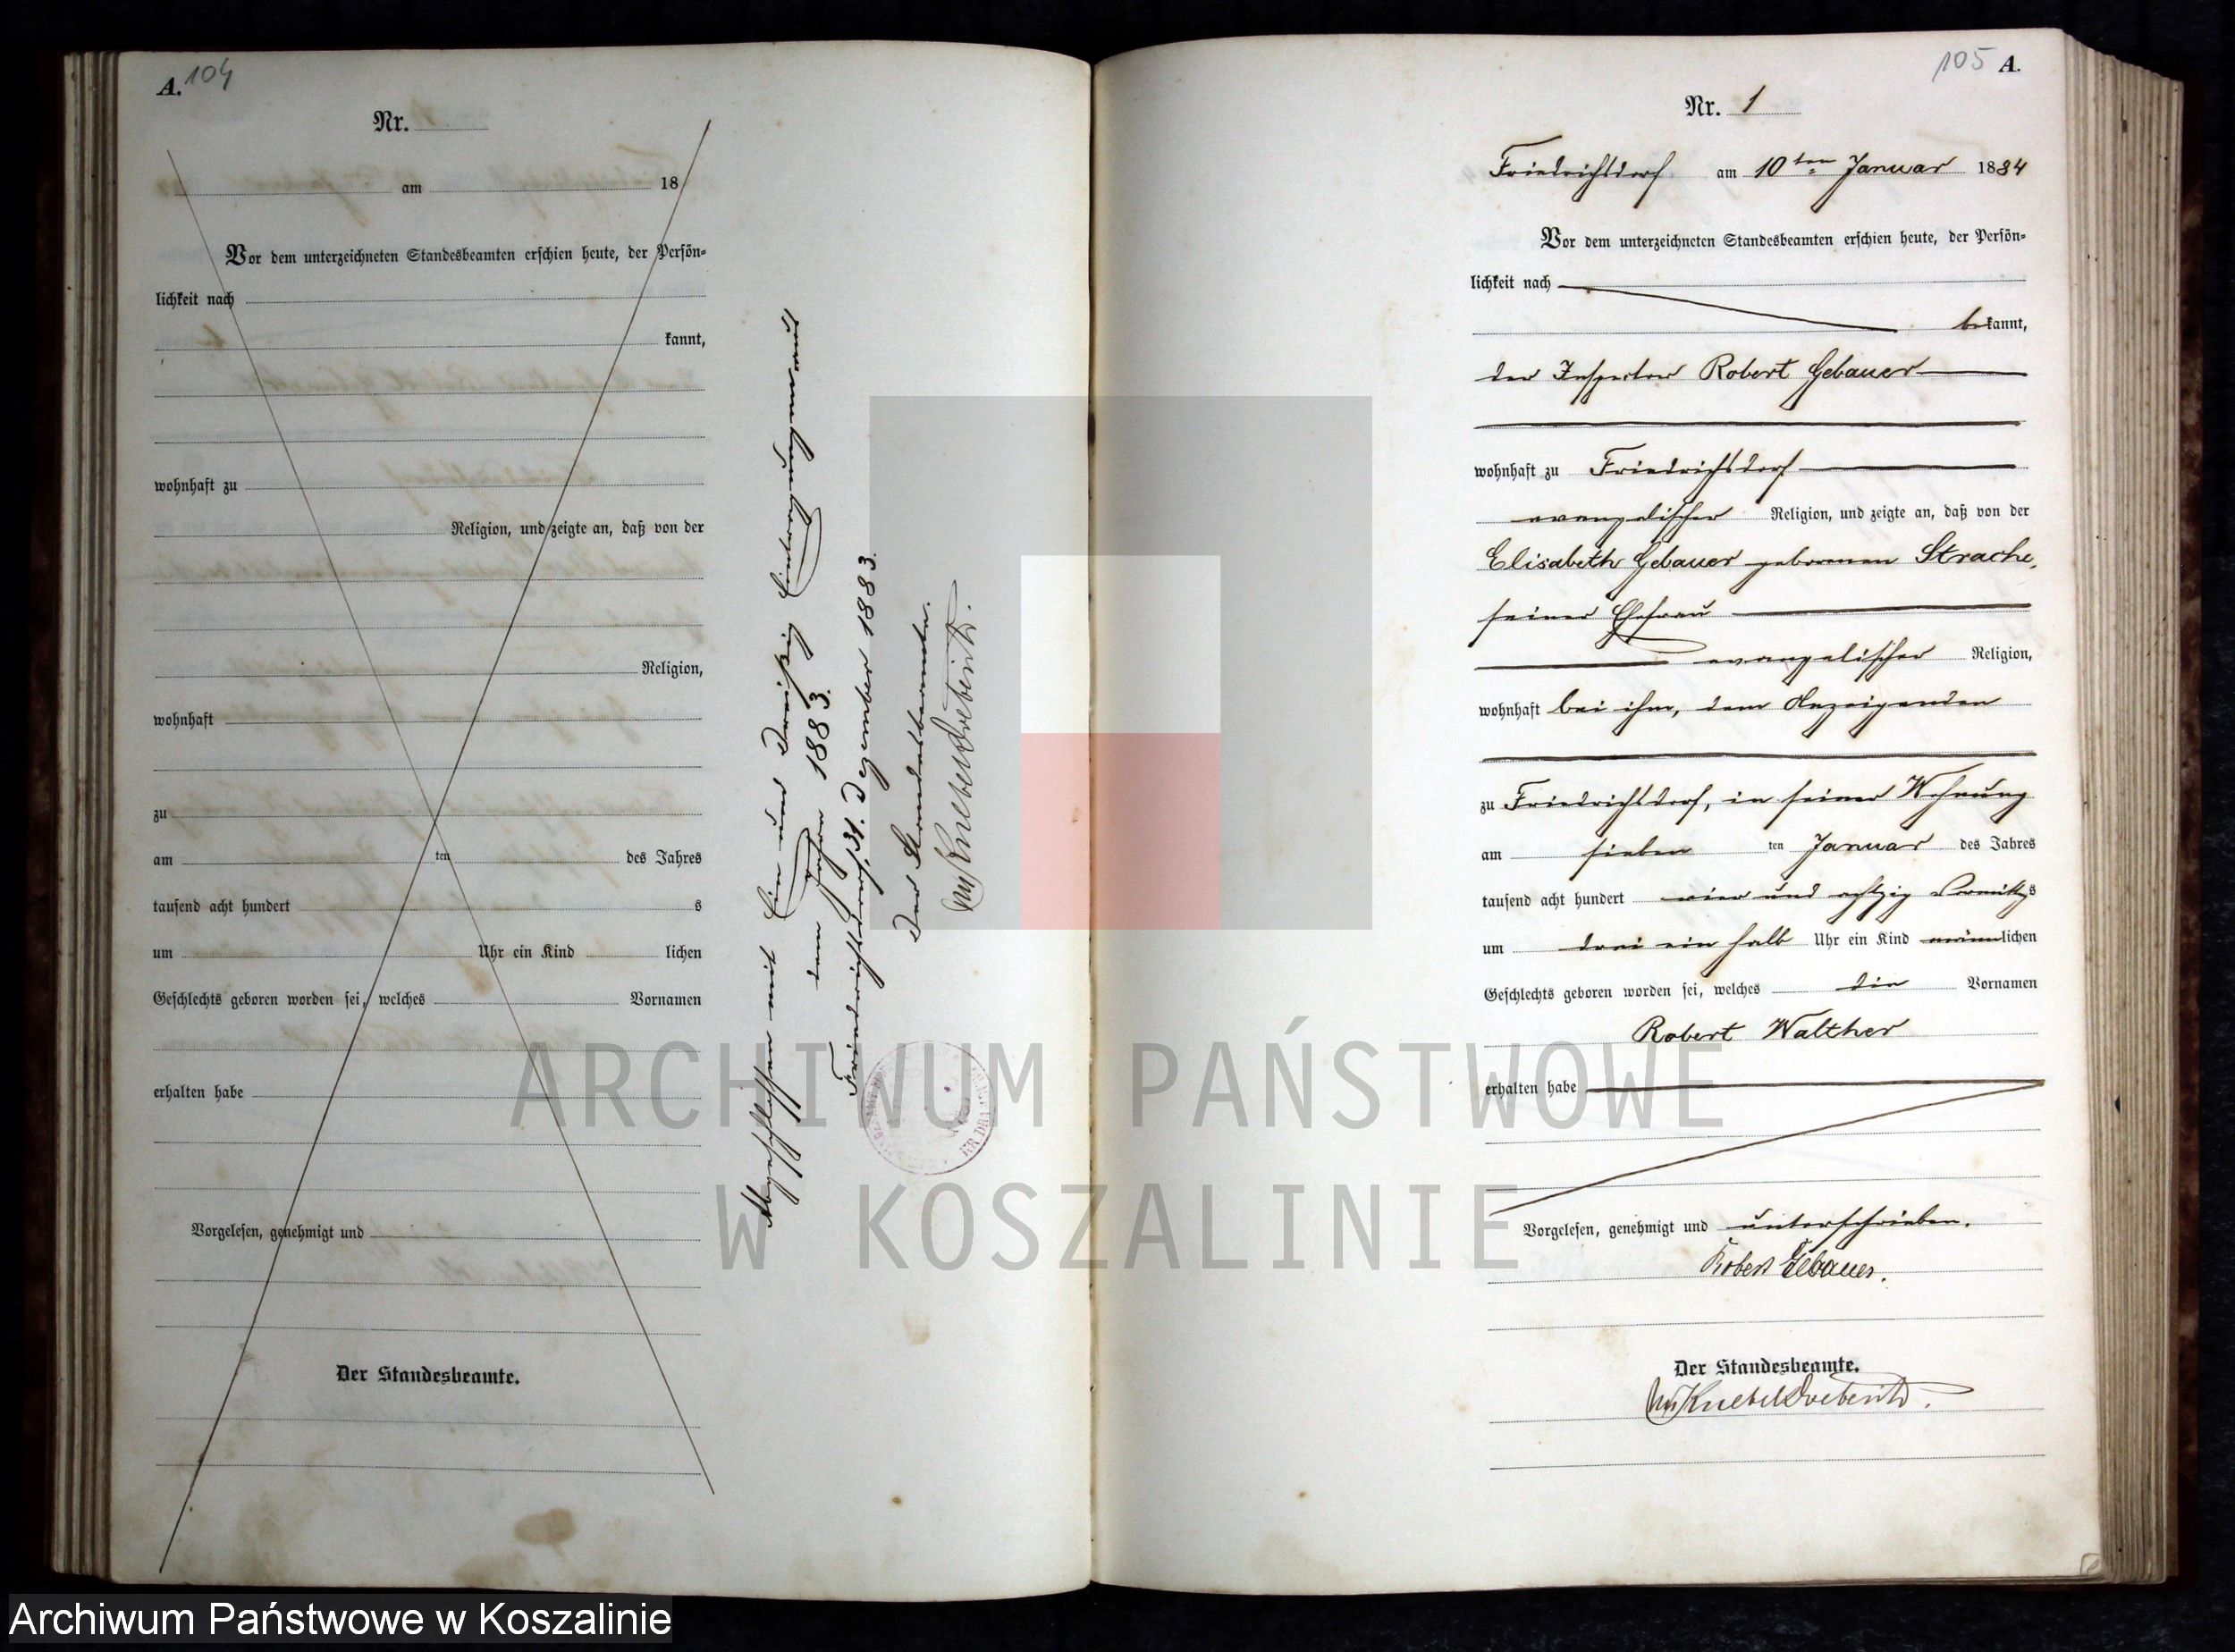 A. 104
Nr.
am 18
Vor dem unterzeichneten Standesbeamten erschien heute, der Persön-
lichkeit nach
kannt,
wohnhaft zu
Religion, und zeigte an, daß von der
Religion,
wohnhaft
zu
am ten des Jahres
tausend acht hundert s
um Uhr ein Kind lichen
Geschlechts geboren worden sei, welches Vornamen
erhalten habe
Vorgelesen, genehmigt und
Der Standesbeamte.
Abgeschlossen mit Ein und dreißig Eintragungen aus
dem Jahre 1883.
Friedrichsdorf, 31. Dezember 1883.
Der Standesbeamte.
105 A.
Nr. 1
Friedrichsdorf am 10ten Januar 1884
Vor dem unterzeichneten Standesbeamten erschien heute, der Persön-
lichkeit nach
bekannt,
der Inspector Robert Gebauer
wohnhaft zu Friedrichsdorf
evangelischer Religion, und zeigte an, daß von der
Elisabeth Gebauer geborenen Strache,
seiner Ehefrau
evangelischer Religion,
wohnhaft bei ihm, dem Anzeigenden
zu Friedrichsdorf, in seiner Wohnung
am sieben ten Januar des Jahres
tausend acht hundert vier und achtzig Vormittags
um drei ein halb Uhr ein Kind männlichen
Geschlechts geboren worden sei, welches die Vornamen
Robert Walther
erhalten habe
Vorgelesen, genehmigt und unterschrieben.
Robert Gebauer.
Der Standesbeamte.
ARCHIWUM PAŃSTWOWE
W KOSZALINIE
Archiwum Państwowe w Koszalinie